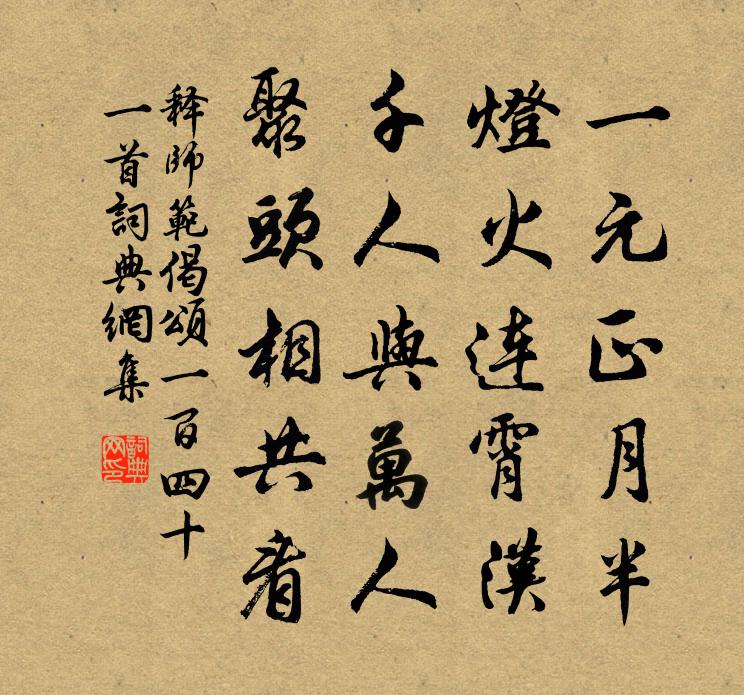 一元正月半
燈火连霄漢
千人與萬人
聚頭相共看
释師範偈頌一百四十
一首詞典網集
詞典
网印